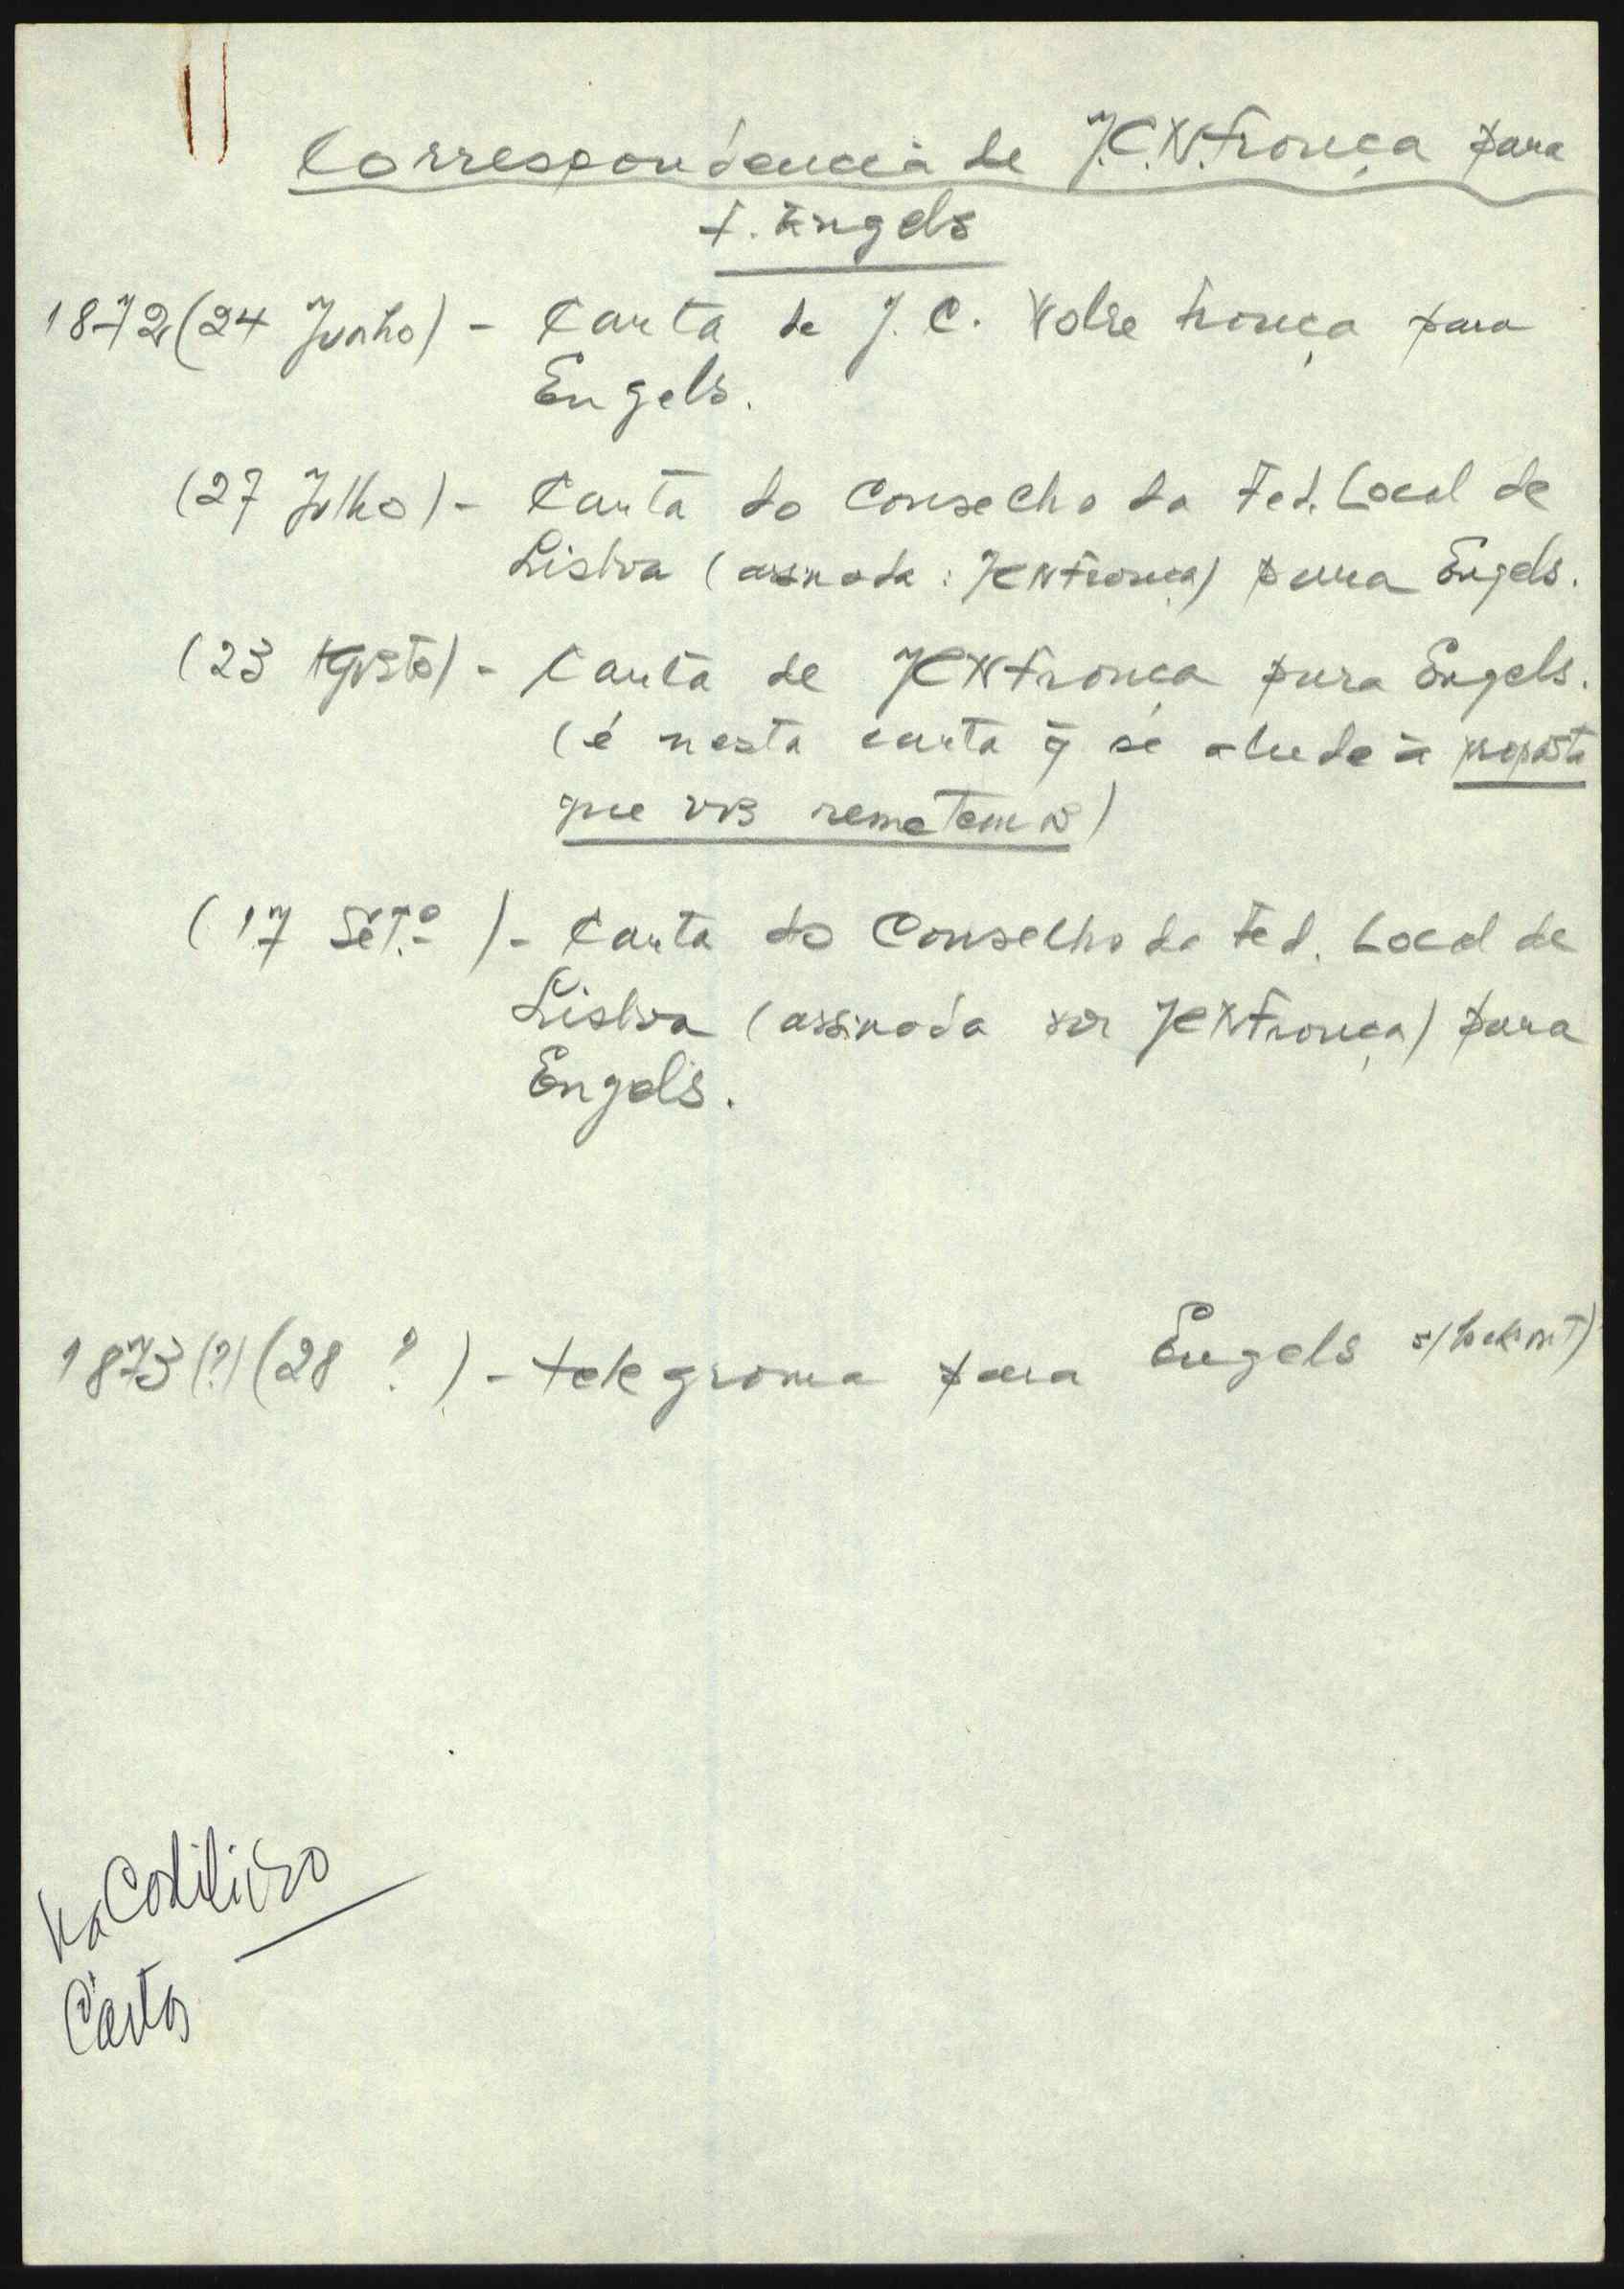 Correspondência de J.C.N.França para
F. Engels
1872 (24 Junho) - Carta de J. C. Nobre França para
Engels.
(27 Julho) - Carta do Conselho da Fed. Local de
Lisboa (assinada: JCNFrança) para Engels.
(23 Agosto) - Carta de JCNFrança para Engels.
(é nesta carta q̃ se alude à proposta
que vos remetemos)
(17 Set.º) - Carta do Conselho da Fed. Local de
Lisboa (assinada por JCNFrança) para
Engels.
1873 (?) (28 ? ) - telegrama para Engels
Cartas